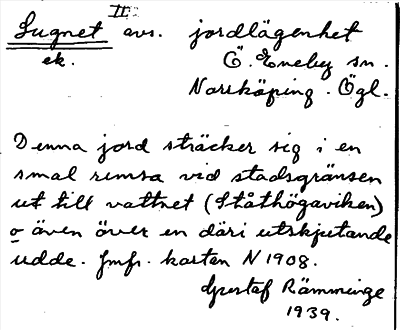 II
Sugnet avs. jordlägenhet
ek. Ö. Eneby sn.
Norrköping. Ögl.
Denna jord sträcker sig i en
smal remsa vid stadsgränsen
ut till vattnet (Ståthögaviken)
o även över en däri utskjutande
udde. Jmfr. kartan N 1908.
Gustaf Rämminge
1939.